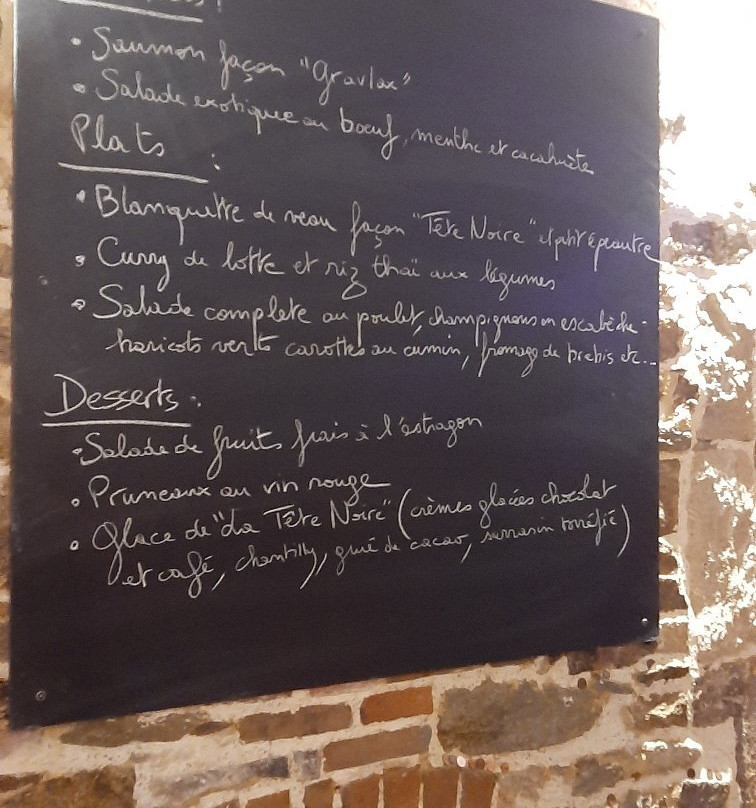 • Saumon façon "Gravlax"
• Salade exotique au bœuf, menthe et cacahuète
Plats :
• Blanquette de veau façon "Tête Noire" et petit épeautre
• Curry de lotte et riz thaï aux légumes
• Salade complète au poulet, champignons en escabèche -
haricots verts carottes au cumin, fromage de brebis etc...
Desserts :
• Salade de fruits frais à l'estragon
• Pruneaux au vin rouge
• Glace de "La Tête Noire" (crèmes glacées chocolat
et café, chantilly, grué de cacao, sarrasin torréfié)